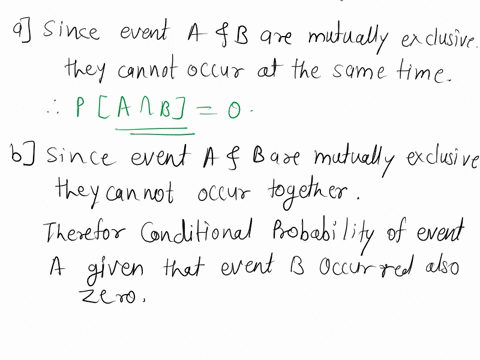 a] Since event A & B are mutually exclusive.
they cannot occur at the same time.
∴ P[A∩B] = 0.
b] Since event A & B are mutually exclusive
they cannot occur together.
Therefor Conditional Probability of event
A given that event B Occurred also
zero.